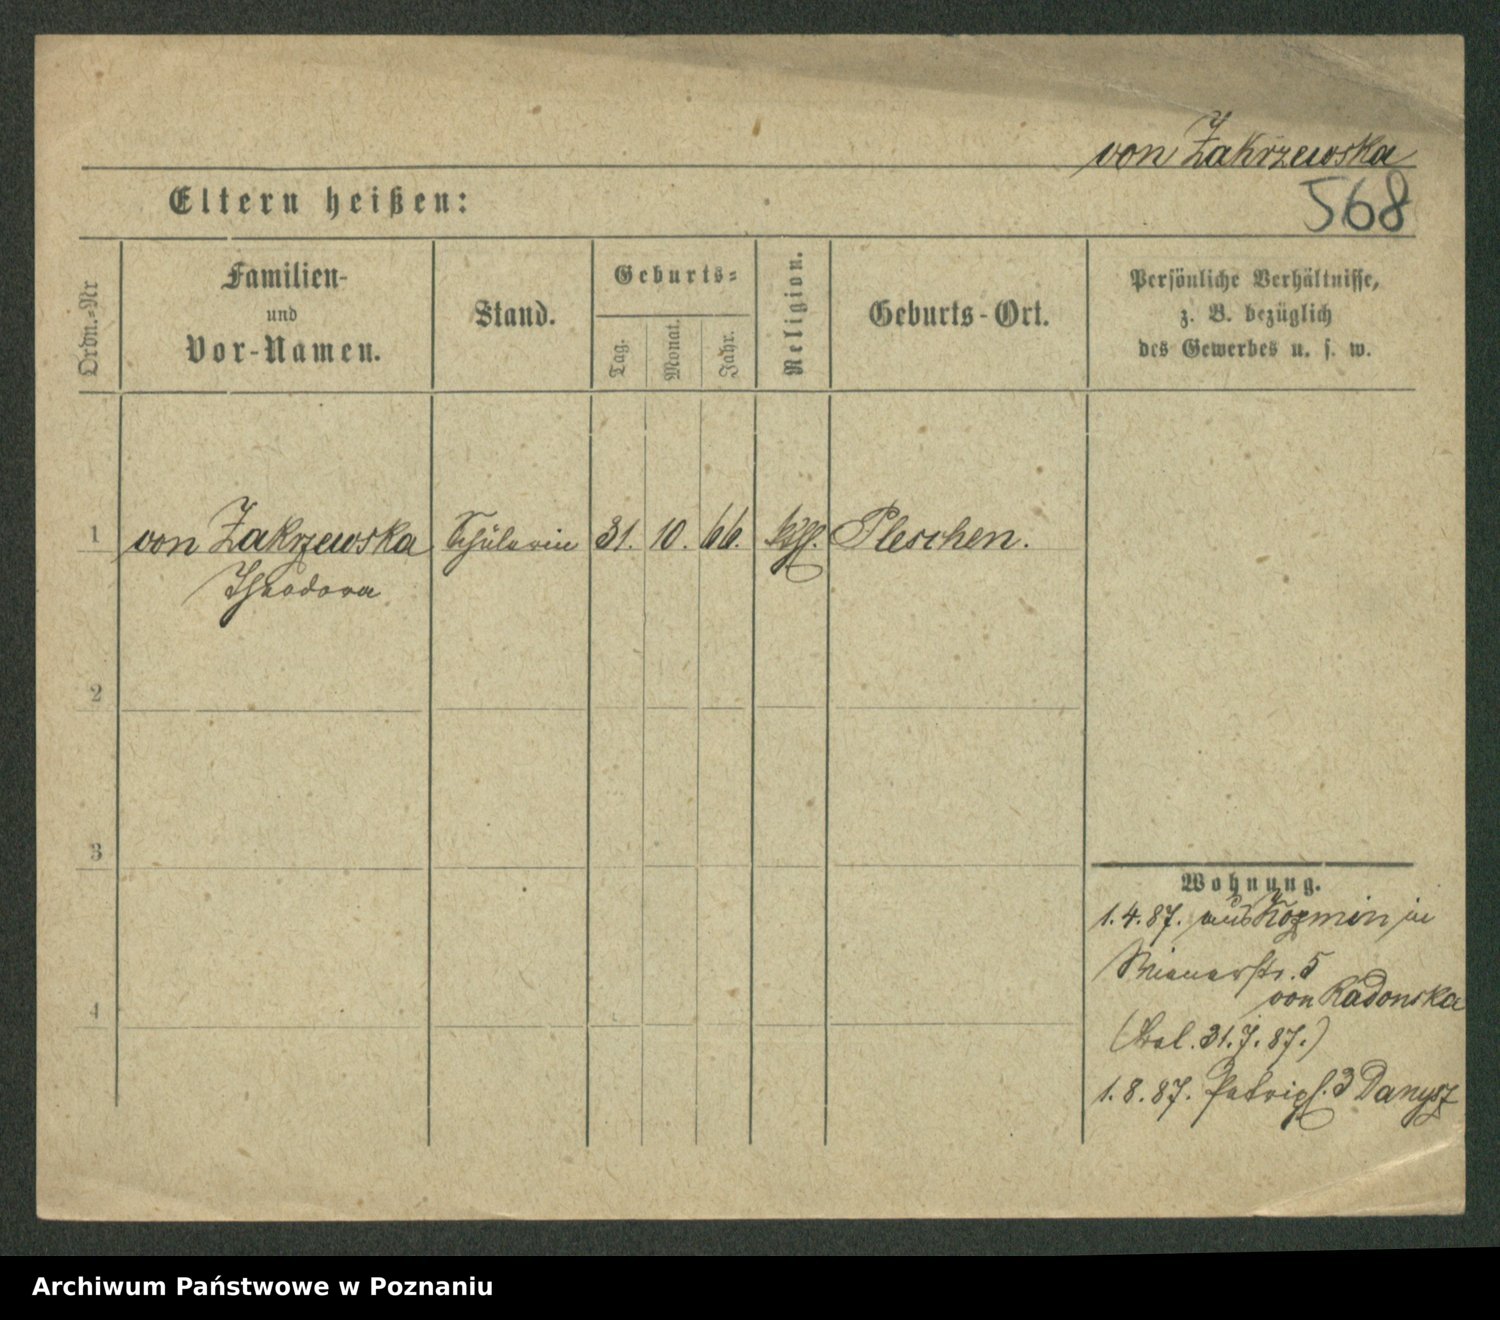 von Zakrzewska
Eltern heißen:
568
Ordn.-Nr
Familien-
und
Vor-Namen.
Stand.
Geburts-
Tag.
Monat.
Jahr.
Religion.
Geburts-Ort.
Persönliche Verhältnisse,
z. B. bezüglich
des Gewerbes u. s. w.
1 von Zakrzewska Schülerin 31. 10. 66. kath. Pleschen.
Theodora
2
3
4
Wohnung.
1.4.87. aus Kozmin in
Wienerstr. 5
von Radonska
31.7.87.)
1.8.87. 3 Danysz
Archiwum Państwowe w Poznaniu